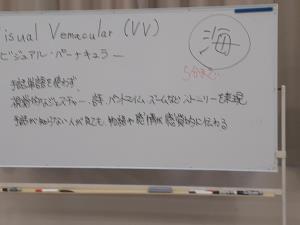 isual Vernacular (VV)
ビジュアル・バーナキュラー
海
5分まで
手話単語を使わず、
視覚的なジェスチャー、詩、パントマイム、ズームなど ストーリーを表現
手話が知らない人が見ても 物語や感情が感覚的に伝わる